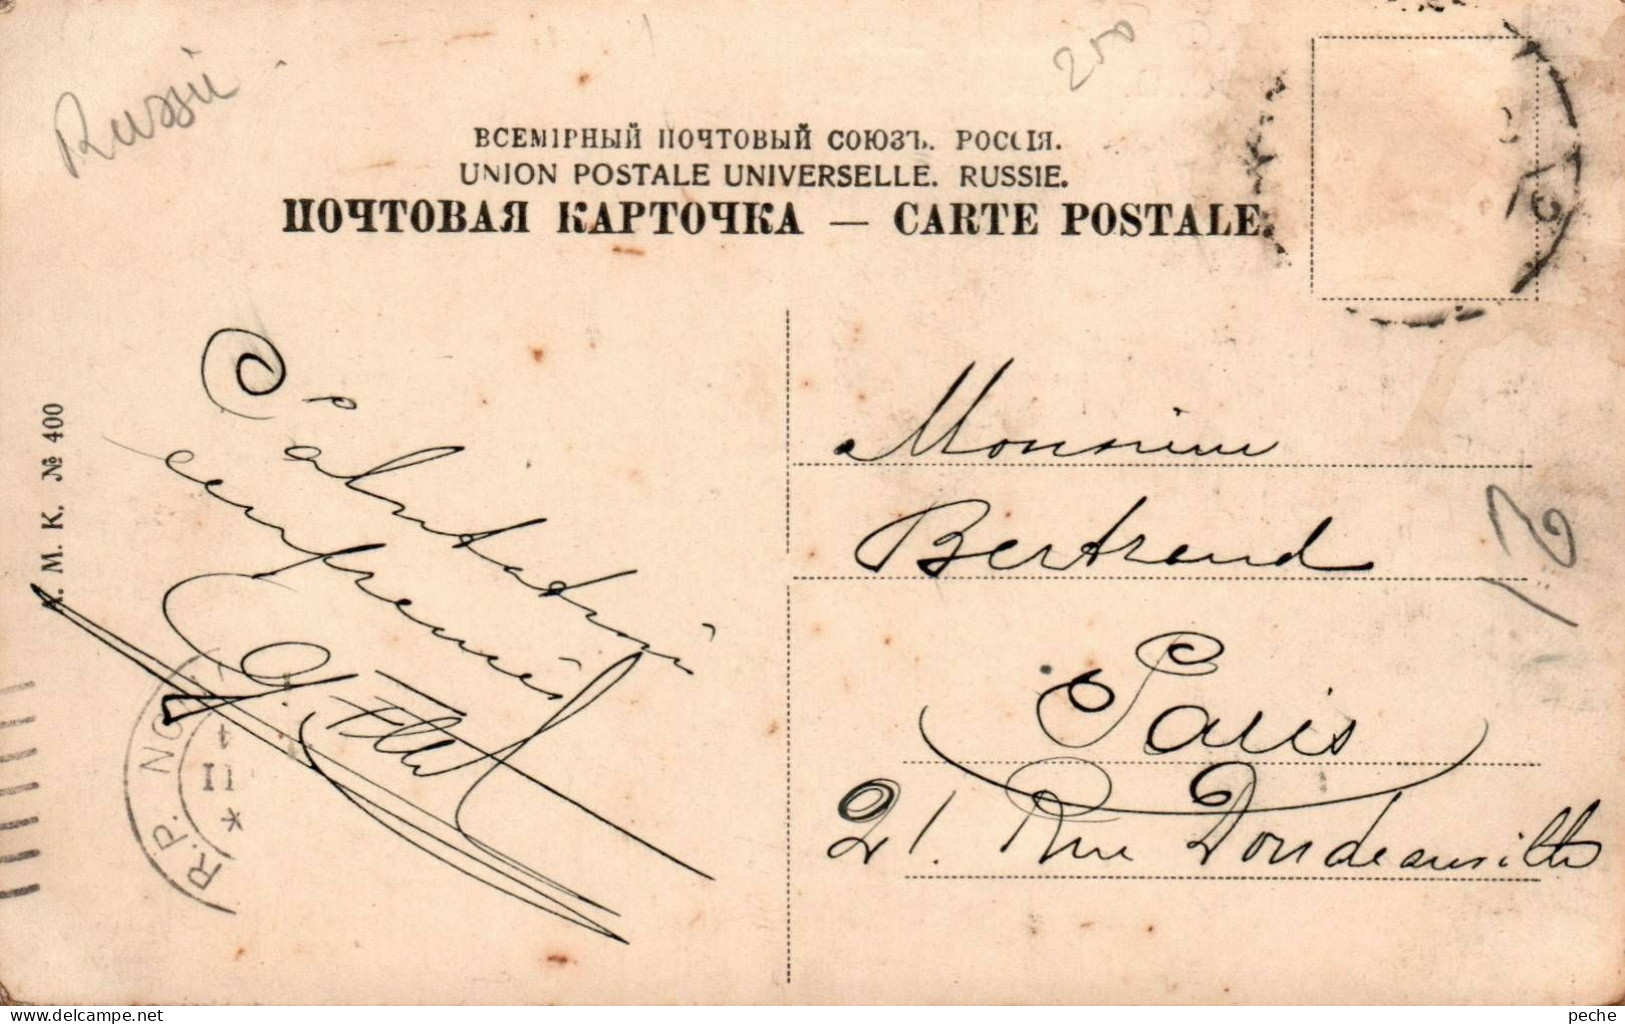 Russie
200
ВСЕМІРНЫЙ ПОЧТОВЫЙ СОЮЗЪ. РОССІЯ.
UNION POSTALE UNIVERSELLE. RUSSIE.
ПОЧТОВАЯ КАРТОЧКА — CARTE POSTALE.
М. К. № 400
Salutations
G.
R.P. NO
11
Monsieur
Bertrand
Paris
21. Rue Doudeauville
12
delcampe.net
peche